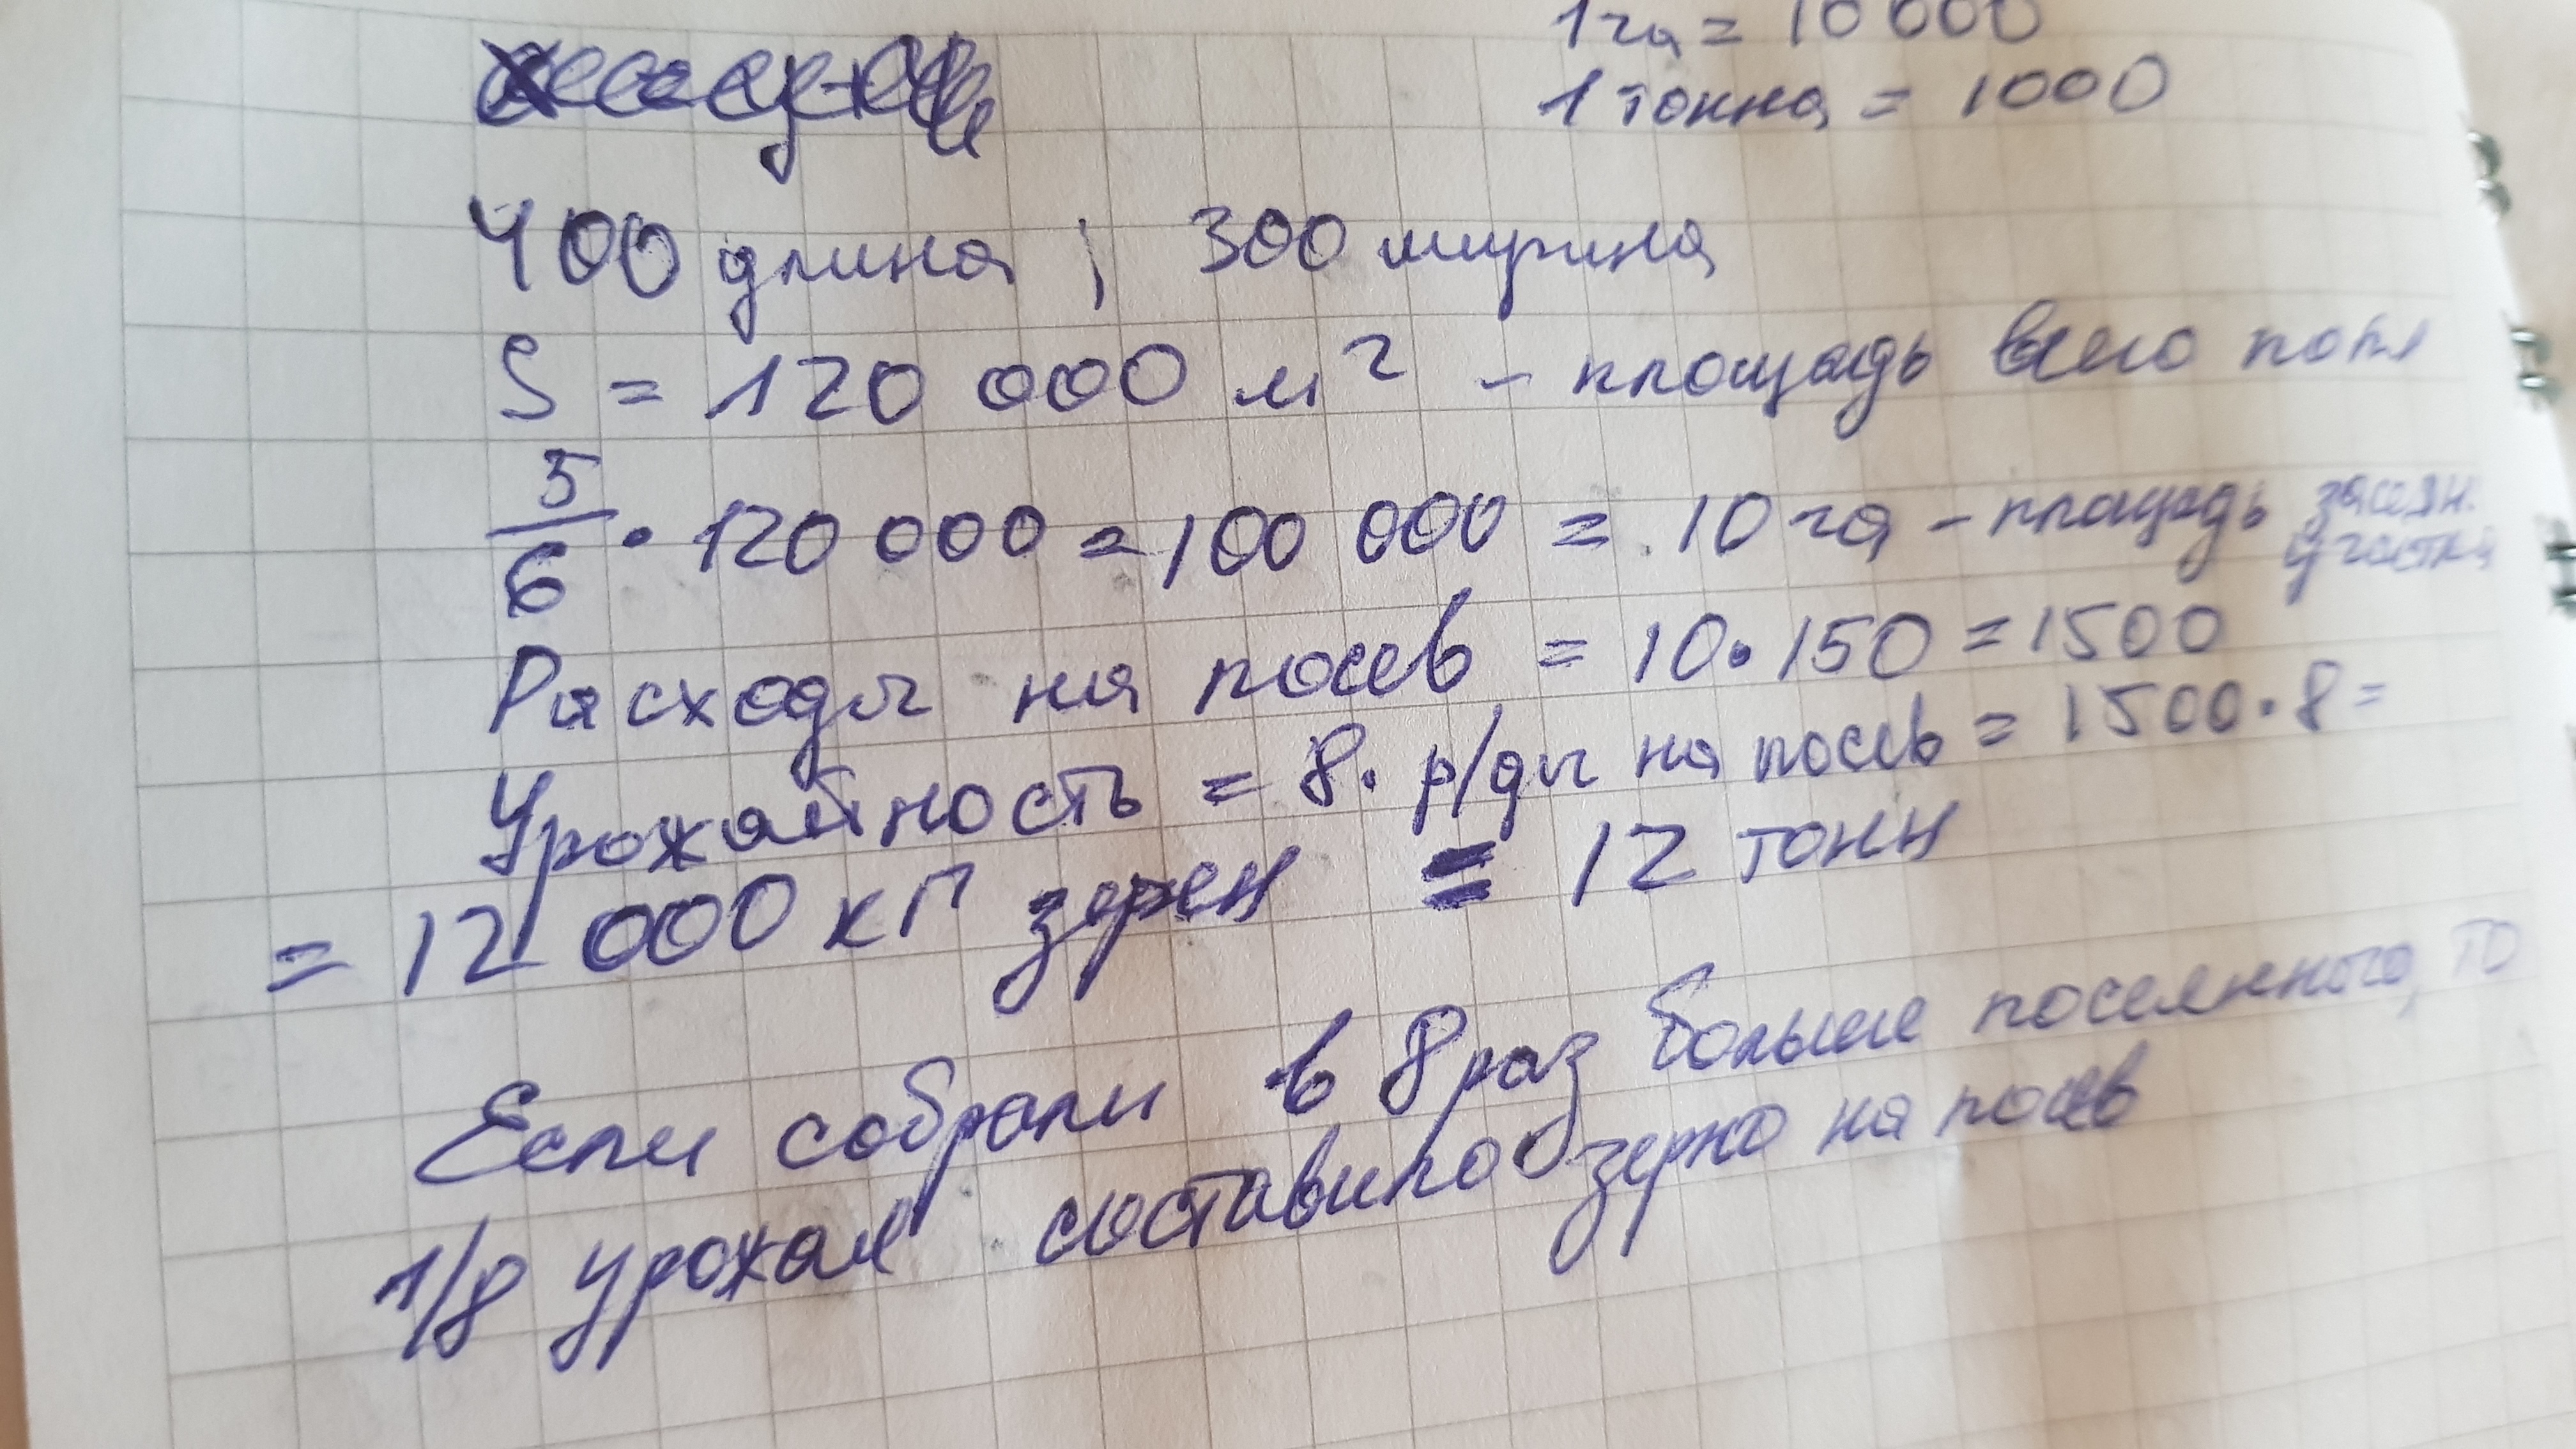 1 га = 10 000
1 тонна = 1000
400 длина ; 300 ширина
S = 120 000 м² - площадь всего поля
5/6 · 120 000 = 100 000 = 10 га - площадь засеян. участка
Расходы на посев = 10 · 150 = 1500
Урожайность = 8 · р/ды на посев = 1500 · 8 =
= 12 000 кг зерен = 12 тонн
Если собрали в 8 раз больше посеянного, то
1/8 урожая составило зерно на посев